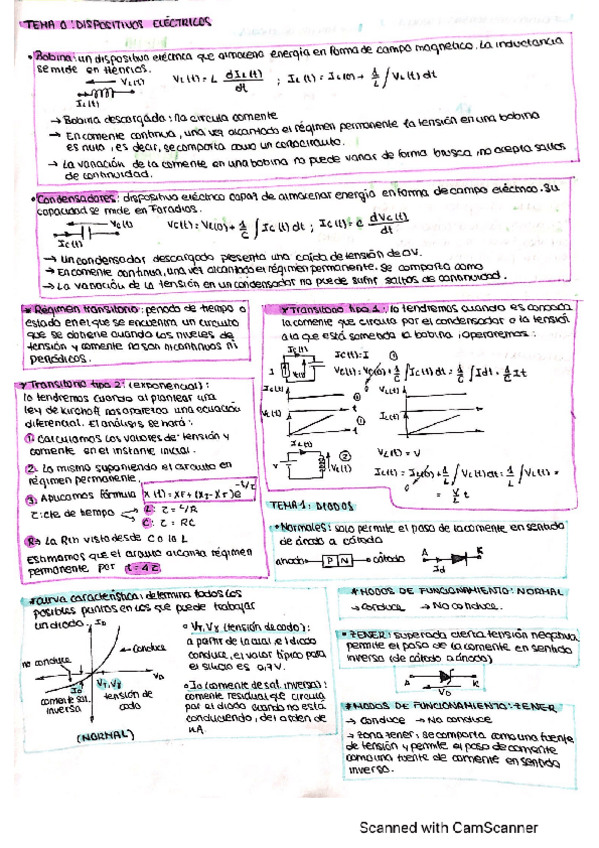 TEMA 0: DISPOSITIVOS ELÉCTRICOS
• Bobina: un dispositivo eléctrico que almacena energía en forma de campo magnético. La inductancia
se mide en Henrios.
VL(t)
VL(t) = L dIL(t)/dt ; IL(t) = IL(0) + 1/L ∫ VL(t) dt
IL(t)
→ Bobina descargada: no circula corriente
→ En corriente continua, una vez alcanzado el régimen permanente la tensión en una bobina
es nula, es decir, se comporta como un cortocircuito.
→ La variación de la corriente en una bobina no puede variar de forma brusca, no acepta saltos
de continuidad.
• Condensadores: dispositivo eléctrico capaz de almacenar energía en forma de campo eléctrico. Su
capacidad se mide en Faradios.
Vc(t)
Vc(t) = Vc(0) + 1/C ∫ Ic(t) dt ; Ic(t) = C dVc(t)/dt
Ic(t)
→ Un condensador descargado presenta una caída de tensión de 0V.
→ En corriente continua, una vez alcanzado el régimen permanente. Se comporta como
→ La variación de la tensión en un condensador no puede sufrir saltos de continuidad.
* Régimen transitorio: periodo de tiempo o
estado en el que se encuentra un circuito
que se obtiene cuando los niveles de
tensión y corriente no son ni continuos ni
periódicos.
* Transitorio tipo 2: (exponencial):
lo tendremos cuando al plantear una
ley de Kirchoff nos aparezca una ecuación
diferencial. El análisis se hará:
1. Calculamos los valores de tensión y
corriente en el instante inicial.
2. Lo mismo suponiendo el circuito en
régimen permanente.
3. Aplicamos fórmula x(t) = XF + (XI - XF) e^-t/τ
τ: cte de tiempo L: τ = L/R
C: τ = RC
R → La RTH vista desde C o la L
Estimamos que el circuito alcanza régimen
permanente por t = 4τ
* Transitorio tipo 1: lo tendremos cuando es conocida
la corriente que circula por el condensador o la tensión
a la que está sometida la bobina, operaremos:
Ic(t)
I
Vc(t)
Ic(t) = I ①
Vc(t) = Vc(0) + 1/C ∫ Ic(t) dt = 1/C ∫ I dt = 1/C I t
0
Ic(t)
t
Vc(t)
①
t
VL(t)
t
IL(t)
②
t
IL(t)
V
VL(t)
②
VL(t) = V
IL(t) = IL(0) + 1/L ∫ VL(t) dt = 1/L ∫ VL(t) =
0
= V/L t
TEMA 1: DIODOS
• Normales: solo permite el paso de la corriente en sentido
de ánodo a cátodo
ánodo P N cátodo A K
Id
* Curva característica: determina todos los
posibles puntos en los que puede trabajar
un diodo.
ID
conduce
no conduce
VD
Io
corriente sat.
inversa
VT, Vγ
tensión de
codo
(NORMAL)
• VT, Vγ (tensión de codo):
a partir de la cual, el diodo
conduce, el valor típico para
el silicio es 0,7V.
• Io (corriente de sat. inversa):
corriente residual que circula
por el diodo cuando no está
conduciendo, del orden de
nA.
* MODOS DE FUNCIONAMIENTO: NORMAL
→ Conduce → No conduce.
• ZENER: superada cierta tensión negativa
permite el paso de la corriente en sentido
inverso (de cátodo a ánodo)
A K
VD
* MODOS DE FUNCIONAMIENTO: ZENER
→ Conduce → No conduce
→ Zona zener: se comporta como una fuente
de tensión y permite el paso de corriente
como una fuente de corriente en sentido
inverso.
Scanned with CamScanner